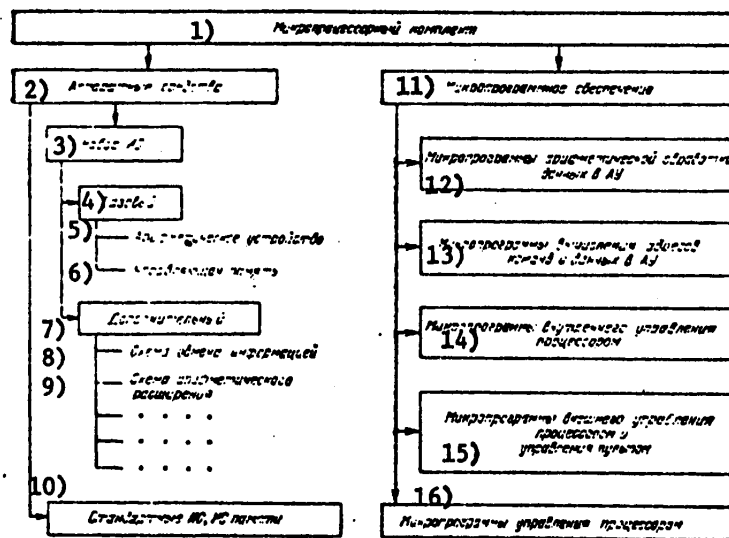 1) Микропроцессорный комплект
2) Аппаратные средства
3) Набор ИС
4) Базовый
5) Арифметическое устройство
6) Управляющая память
7) Дополнительный
8) Схема обмена информацией
9) Схема арифметического
расширения
10)
Стандартные ИС, ИС памяти
11) Микропрограммное обеспечение
Микропрограммы арифметической обработки
12) данных в АУ
Микропрограммы вычисления адресов
13) команд и данных в АУ
Микропрограммы внутреннего управления
14) процессором
Микропрограммы внешнего управления
процессором и
15) управления пультом
16)
Микропрограммы управления процессором